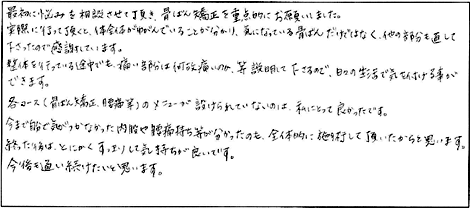 最初に悩みを相談させて頂き、骨ばん矯正を重点的にお願いしました。
実際に行って頂くと、体全体がゆがんでいることが分かり、気になっている骨ばんだけではなく、他の部分も直して
下さったので感謝しています。
整体を行っている途中でも、痛い部分は何故痛いのか、等説明して下さるので、日々の生活で気を付ける事が
できます。
各コース(骨ばん矯正、腰痛等)のメニューが設けられていないのは、私にとって良かったです。
今まで自分で気がつかなかった内股や腰痛持ち等が分かったのも、全体的に施術して頂いたからと思います。
終った後は、とにかくすっきりして気持ちが良いです。
今後も通い続けたいと思います。